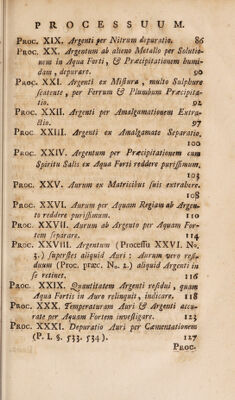 PROCESSUUM.
Proc. XIX. Argenti per Nitrum depuratio. 86
Proc. XX. Argentum ab alieno Metallo per Solutio-
nem in Aqua Forti, & Præcipitationem humi-
dam, depurare. 90
Proc. XXI. Argenti ex Misturâ, multo Sulphure
scatente, per Ferrum & Plumbum Præcipita-
tio. 92
Proc. XXII. Argenti per Amalgamationem Extra-
ctio. 97
Proc. XXIII. Argenti ex Amalgamate Separatio.
100
Proc. XXIV. Argentum per Præcipitationem cum
Spiritu Salis ex Aqua Forti reddere purissimum.
103
Proc. XXV. Aurum ex Matricibus suis extrahere.
108
Proc. XXVI. Aurum per Aquam Regiam ab Argen-
to reddere purissimum. 110
Proc. XXVII. Aurum ab Argento per Aquam For-
tem separare. 114
Proc. XXVIII. Argentum (Processu XXVI. No.
3.) superstes aliquid Auri: Aurum vero resi-
duum (Proc. præc. No. 2.) aliquid Argenti in
se retinet. 116
Proc. XXIX. Quantitatem Argenti residui, quam
Aqua Fortis in Auro relinquit, indicare. 118
Proc. XXX. Temperaturam Auri & Argenti accu-
rate per Aquam Fortem investigare. 123
Proc. XXXI. Depuratio Auri per Cæmentationem
(P. I. §. 533. 534). 127
Proc.